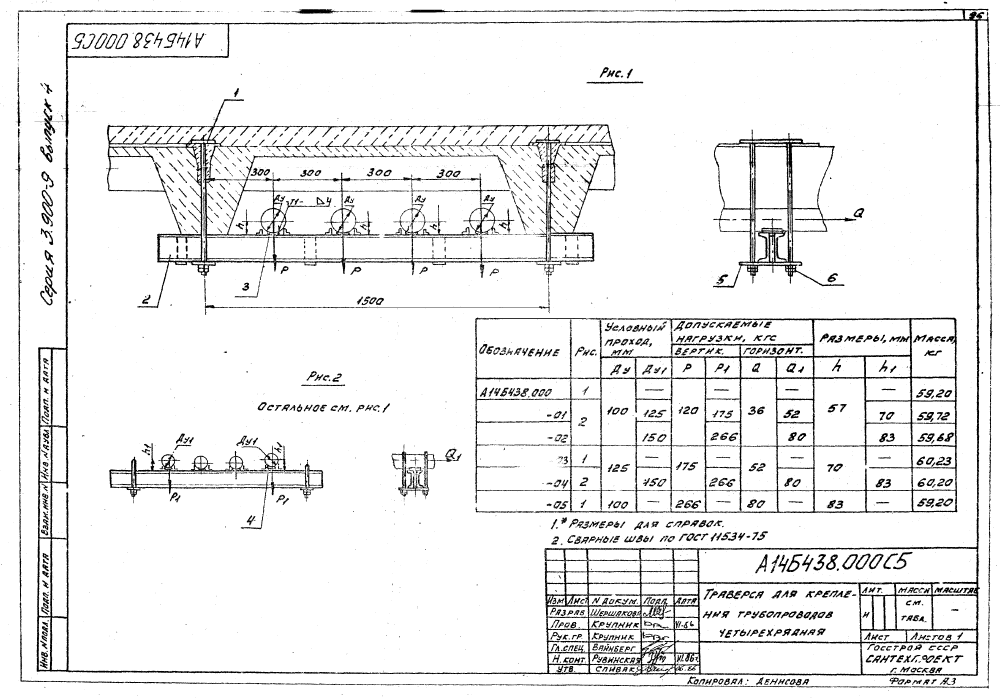 96
А14Б438.000СБ
Серия 3.900-9 Выпуск 4
Рис.1
1
300 300 300 300
Ду Ду Ду Ду
h h h h
P P P P
2
3
1500
Q
5
6
Рис.2
Остальное см. рис.1
h1 Ду1 Ду1 h1
P1 P1
4
Q1
Обозначение Рис. Условный проход, мм Допускаемые нагрузки, кгс Размеры, мм Масса, кг
Вертик. Горизонт.
Ду Ду1 P P1 Q Q1 h h1
А14Б438.000 1 100 — 120 — 36 — 57 — 59,20
-01 2 125 175 52 70 59,72
-02 150 266 80 83 59,68
-03 1 125 — 175 — 52 — 70 — 60,23
-04 2 150 266 80 83 60,20
-05 1 100 — 266 — 80 — 83 — 59,20
1.* Размеры для справок.
2. Сварные швы по ГОСТ 11534-75
А14Б438.000СБ
Изм. Лист N докум. Подп. Дата
Разраб. Шершакова
Пров. Крупник VI.86
Рук.гр. Крупник
Гл.спец. Вайнберг
Н. конт. Рувинская VI.86г
Утв. Спивак
Траверса для крепле-
ния трубопроводов
четырехрядная
Лит. Масса Масштаб
И см. табл. —
Лист Листов 1
Госстрой СССР
Сантехпроект
г. Москва
Копировал: Денисова Формат А3
Инв. N подл. Подп. и дата Взам. инв. N Инв. N дубл. Подп. и дата